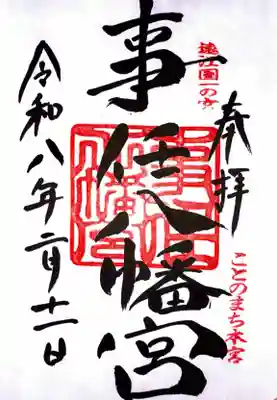 奉拝
ことのまち本宮
遠江國一の宮
事任八幡宮
令和八年二月十一日